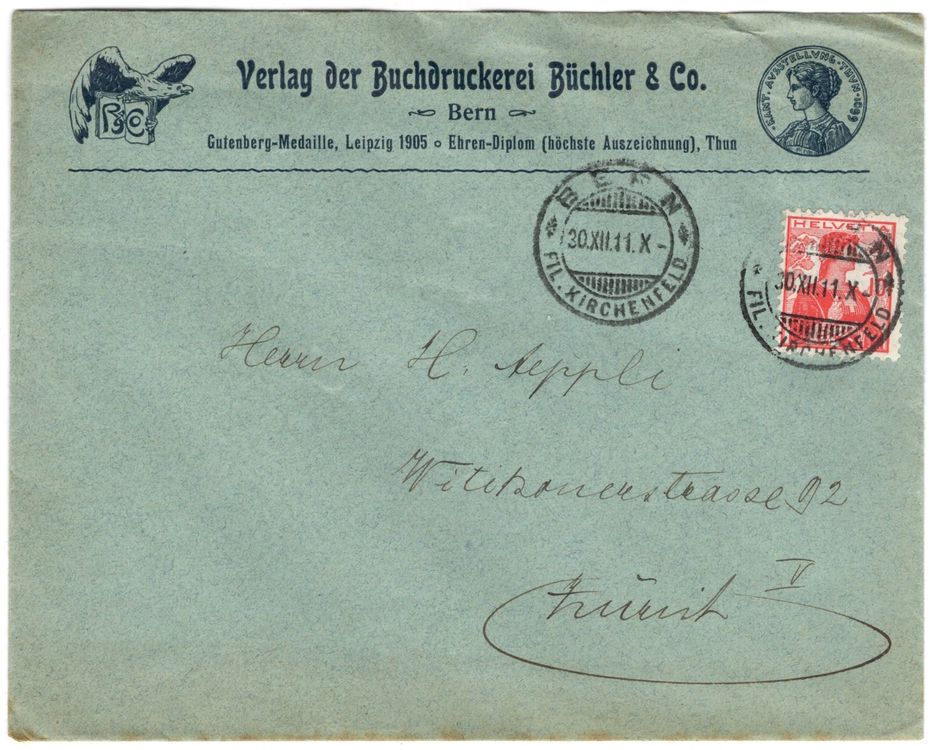 B&Co.
Verlag der Buchdruckerei Büchler & Co.
Bern
Gutenberg-Medaille, Leipzig 1905 o Ehren-Diplom (höchste Auszeichnung), Thun
KANT. AVSSTELLVNG·THVN·1899
BERN
30.XII.11.X-
FIL. KIRCHENFELD
HELVETIA
10
BERN
30.XII.11.X
FIL. KIRCHENFELD
Herrn H. Aeppli
Witikonerstrasse 92
Zürich V